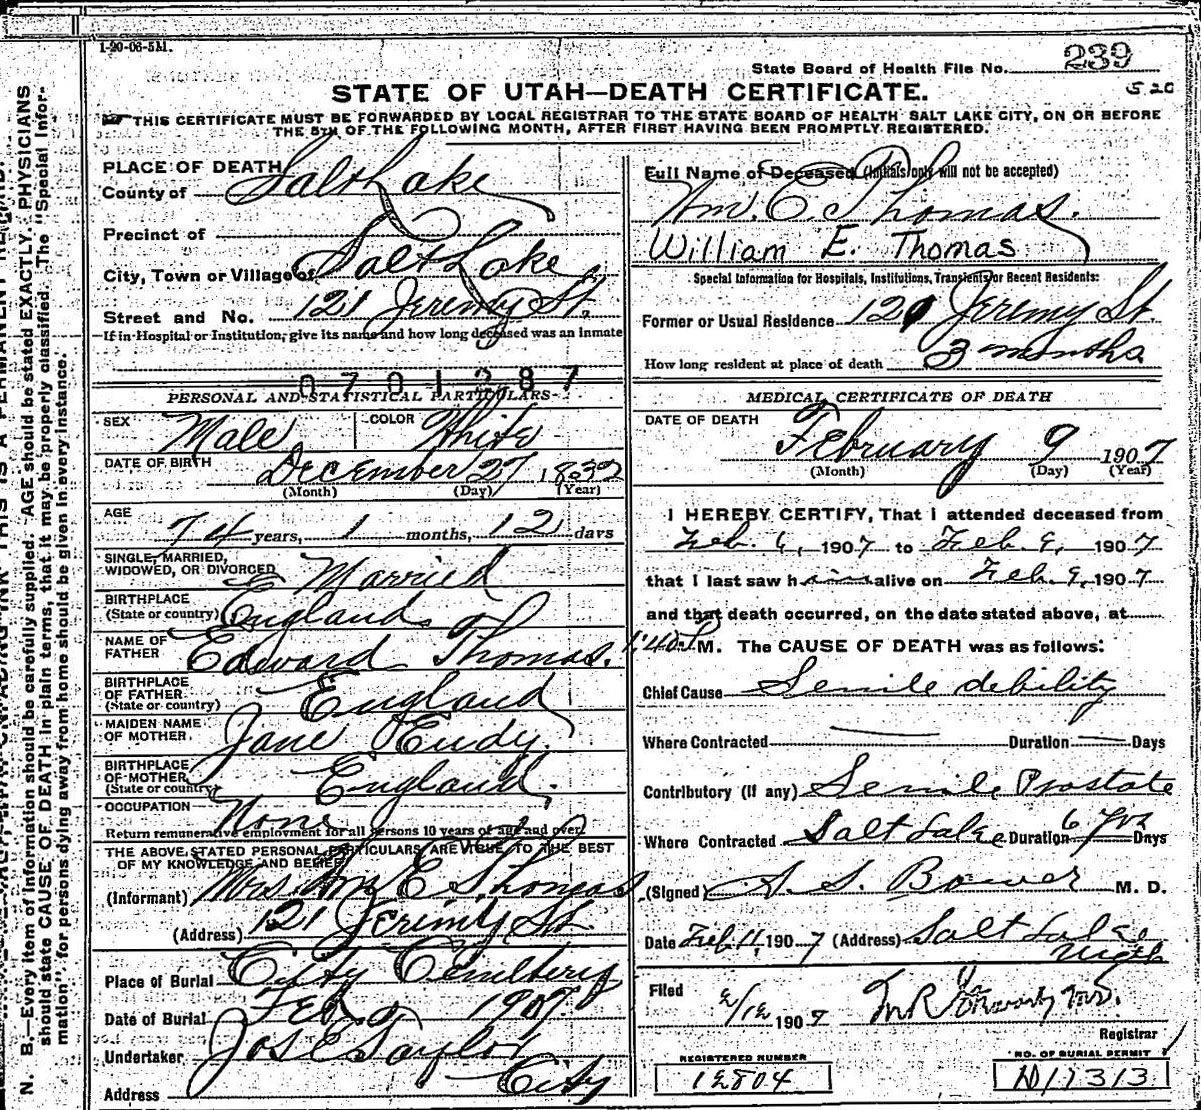 1-20-06-5M.
State Board of Health File No. 239
5 20
STATE OF UTAH—DEATH CERTIFICATE.
THIS CERTIFICATE MUST BE FORWARDED BY LOCAL REGISTRAR TO THE STATE BOARD OF HEALTH SALT LAKE CITY, ON OR BEFORE
THE 5TH OF THE FOLLOWING MONTH, AFTER FIRST HAVING BEEN PROMPTLY REGISTERED.
PLACE OF DEATH
County of Salt Lake
Precinct of
City, Town or Village of Salt Lake
Street and No. 121 Jeremy St.
If in Hospital or Institution, give its name and how long deceased was an inmate
0701287
PERSONAL AND STATISTICAL PARTICULARS
SEX Male COLOR White
DATE OF BIRTH December 27 1832
(Month) (Day) (Year)
AGE
74 years, 1 months, 12 days
SINGLE, MARRIED,
WIDOWED, OR DIVORCED Married
BIRTHPLACE
(State or country) England
NAME OF
FATHER Edward Thomas.
BIRTHPLACE
OF FATHER
(State or country) England
MAIDEN NAME
OF MOTHER Jane Eudy.
BIRTHPLACE
OF MOTHER
(State or country) England.
OCCUPATION None
Return remunerative employment for all persons 10 years of age and over.
THE ABOVE STATED PERSONAL PARTICULARS ARE TRUE TO THE BEST
OF MY KNOWLEDGE AND BELIEF
(Informant) Mrs Wm E Thomas
(Address) 121 Jeremy St
Place of Burial City Cemetery
Date of Burial Feb 1907.
Undertaker Jos E Taylor
Address City
Full Name of Deceased (Initials only will not be accepted)
Wm. E. Thomas.
William E. Thomas
Special Information for Hospitals, Institutions, Transients or Recent Residents:
Former or Usual Residence 121 Jeremy St.
How long resident at place of death 3 months
MEDICAL CERTIFICATE OF DEATH
DATE OF DEATH
February 9 1907
(Month) (Day) (Year)
I HEREBY CERTIFY, That I attended deceased from
Feb. 6, 1907 to Feb. 9, 1907
that I last saw him alive on Feb. 9, 1907
and that death occurred, on the date stated above, at
1:40 P. M. The CAUSE OF DEATH was as follows:
Chief Cause Senile debility
Where Contracted Duration Days
Contributory (If any) Senile Prostate
Where Contracted Salt Lake Duration 6 yrs Days
(Signed) A. S. Bower M. D.
Date Feb. 11, 1907 (Address) Salt Lake
Utah
Filed 2/12 1907
Registrar
REGISTERED NUMBER
12804
NO. OF BURIAL PERMIT
D17313
N. B.—Every item of information should be carefully supplied. AGE should be stated EXACTLY. PHYSICIANS
should state CAUSE OF DEATH in plain terms, that it may be properly classified. The "Special Infor-
mation" for persons dying away from home should be given in every instance.